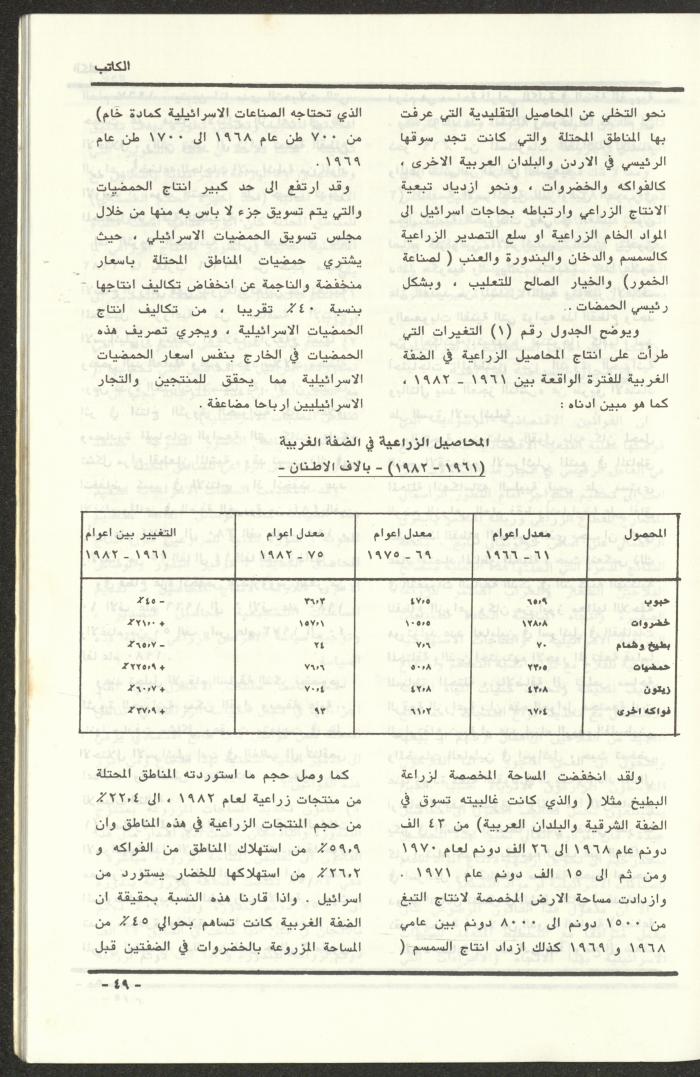 الكاتب
نحو التخلي عن المحاصيل التقليدية التي عرفت
بها المناطق المحتلة والتي كانت تجد سوقها
الرئيسي في الاردن والبلدان العربية الاخرى ،
كالفواكه والخضروات ، ونحو ازدياد تبعية
الانتاج الزراعي وارتباطه بحاجات اسرائيل الى
المواد الخام الزراعية او سلع التصدير الزراعية
كالسمسم والدخان والبندورة والعنب ( لصناعة
الخمور) والخيار الصالح للتعليب ، وبشكل
رئيسي الحمضات ..
ويوضح الجدول رقم (١) التغيرات التي
طرأت على انتاج المحاصيل الزراعية في الضفة
الغربية للفترة الواقعة بين ١٩٦١ - ١٩٨٢ ،
كما هو مبين ادناه :
الذي تحتاجه الصناعات الاسرائيلية كمادة خام)
من ٧٠٠ طن عام ١٩٦٨ الى ١٧٠٠ طن عام
١٩٦٩ .
وقد ارتفع الى حد كبير انتاج الحمضيات
والتي يتم تسويق جزء لا باس به منها من خلال
مجلس تسويق الحمضيات الاسرائيلي ، حيث
يشتري حمضيات المناطق المحتلة باسعار
منخفضة والناجمة عن انخفاض تكاليف انتاجها
بنسبة ٤٠٪ تقريبا ، من تكاليف انتاج
الحمضيات الاسرائيلية ، ويجري تصريف هذه
الحمضيات في الخارج بنفس اسعار الحمضيات
الاسرائيلية مما يحقق للمنتجين والتجار
الاسرائيليين ارباحا مضاعفة .
المحاصيل الزراعية في الضفة الغربية
(١٩٦١ - ١٩٨٢) - بالاف الاطنان -
المحصول معدل اعوام معدل اعوام معدل اعوام التغيير بين اعوام
٦١ - ١٩٦٦ ٦٩ - ١٩٧٥ ٧٥ - ١٩٨٢ ١٩٦١ - ١٩٨٢
حبوب ٦٥،٩ ٤٧،٥ ٣٦،٣ - ٤٥٪
خضروات ١٢٨،٨ ١٠٥،٥ ١٥٧،١ + ٢١،٠٪
بطيخ وشمام ٧٠ ٧،٦ ٢٤ - ٦٥،٧٪
حمضيات ٢٣،٥ ٥٠،٨ ٧٦،٦ + ٢٢٥،٩٪
زيتون ٤٣،٨ ٤٢،٨ ٧٠،٤ + ٦٠،٧٪
فواكه اخرى ٦٧،٤ ٦١،٢ ٩٣ + ٣٧،٩٪
ولقد انخفضت المساحة المخصصة لزراعة
البطيخ مثلا ( والذي كانت غالبيته تسوق في
الضفة الشرقية والبلدان العربية) من ٤٣ الف
دونم عام ١٩٦٨ الى ٢٦ الف دونم لعام ١٩٧٠
ومن ثم الى ١٥ الف دونم عام ١٩٧١ .
وازدادت مساحة الارض المخصصة لانتاج التبغ
من ١٥٠٠ دونم الى ٨٠٠٠ دونم بين عامي
١٩٦٨ و ١٩٦٩ كذلك ازداد انتاج السمسم (
كما وصل حجم ما استوردته المناطق المحتلة
من منتجات زراعية لعام ١٩٨٢ ، الى ٢٢،٤٪
من حجم المنتجات الزراعية في هذه المناطق وان
٥٩،٩٪ من استهلاك المناطق من الفواكه و
٢٦،٢٪ من استهلاكها للخضار يستورد من
اسرائيل . واذا قارنا هذه النسبة بحقيقة ان
الضفة الغربية كانت تساهم بحوالي ٤٥٪ من
المساحة المزروعة بالخضروات في الضفتين قبل
- ٤٩ -